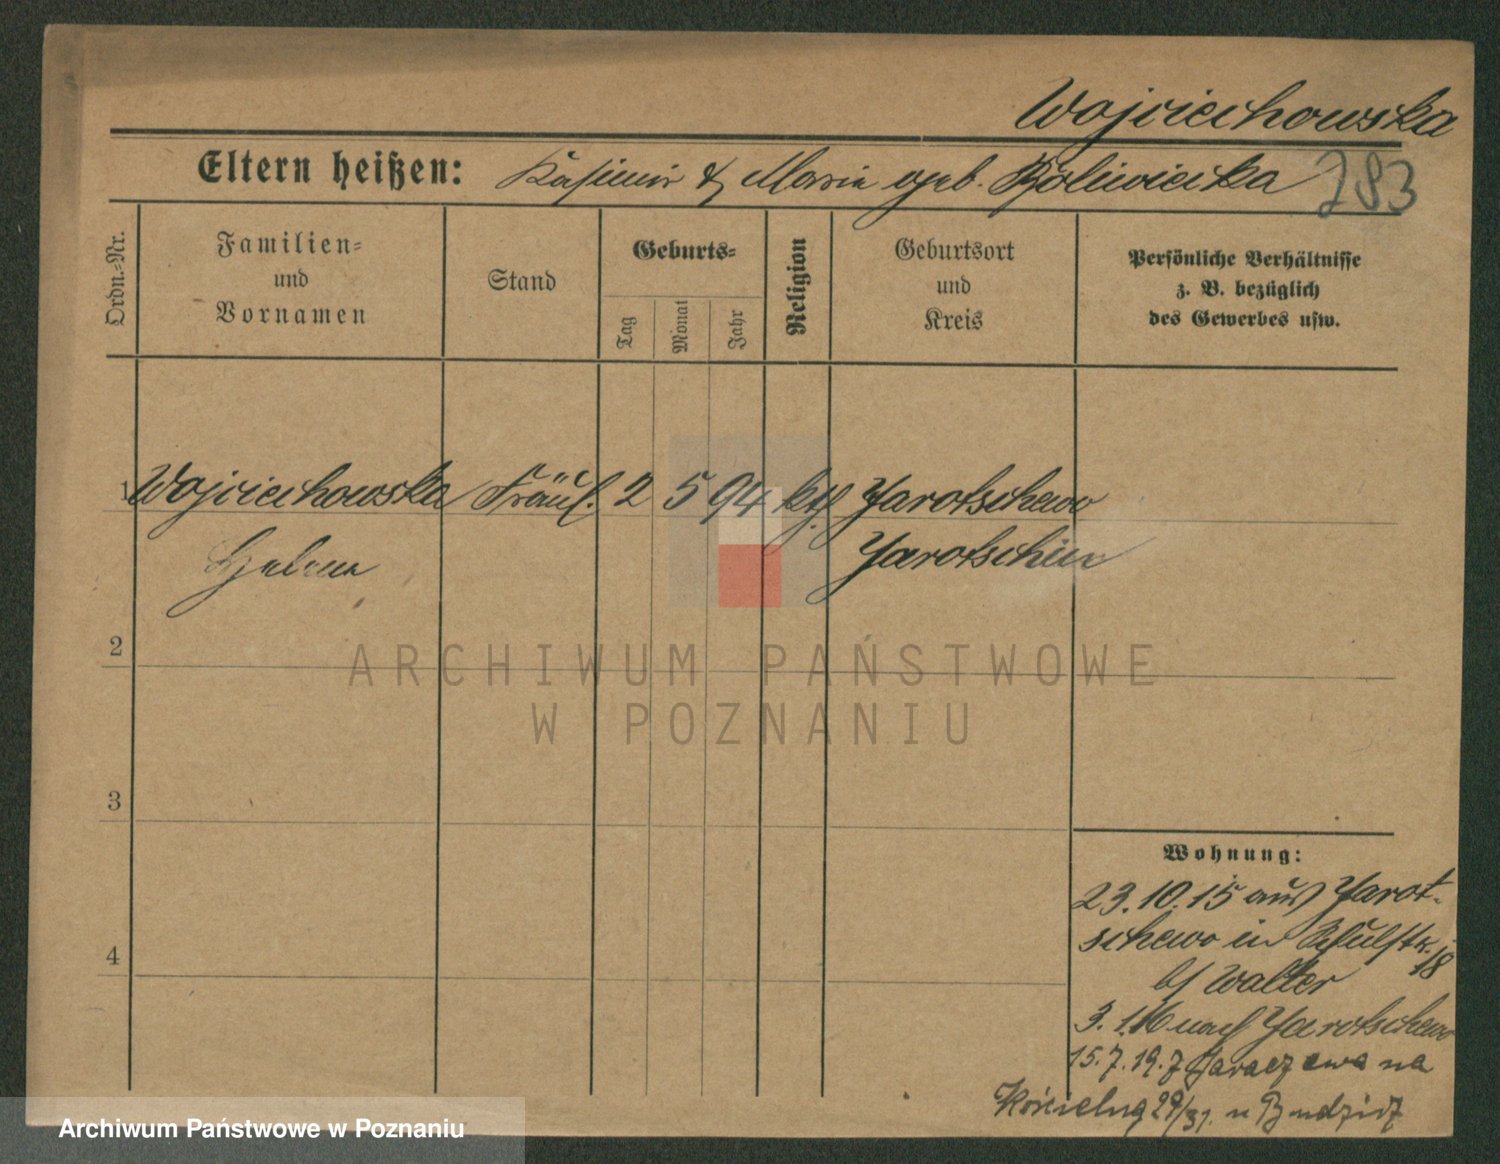 Wojciechowska
Eltern heißen: Kasimir & Maria geb.
283
Ordn.-Nr.
Familien-
und
Vornamen
Stand
Geburts-
Tag
Monat
Jahr
Religion
Geburtsort
und
Kreis
Persönliche Verhältnisse
z. B. bezüglich
des Gewerbes usw.
1 Wojciechowska Fräul. 2 5 94 kth Jarotschewo
Helena Jarotschin
2
3
4
ARCHIWUM PAŃSTWOWE
W POZNANIU
Wohnung:
23.10.15 aus Jarot-
schewo in Schulstr. 18
b/ Walter
3.1.16 nach Jarotschewo
15.7.19. z Jaraczewa na
Kościelną 29/31. u
Archiwum Państwowe w Poznaniu